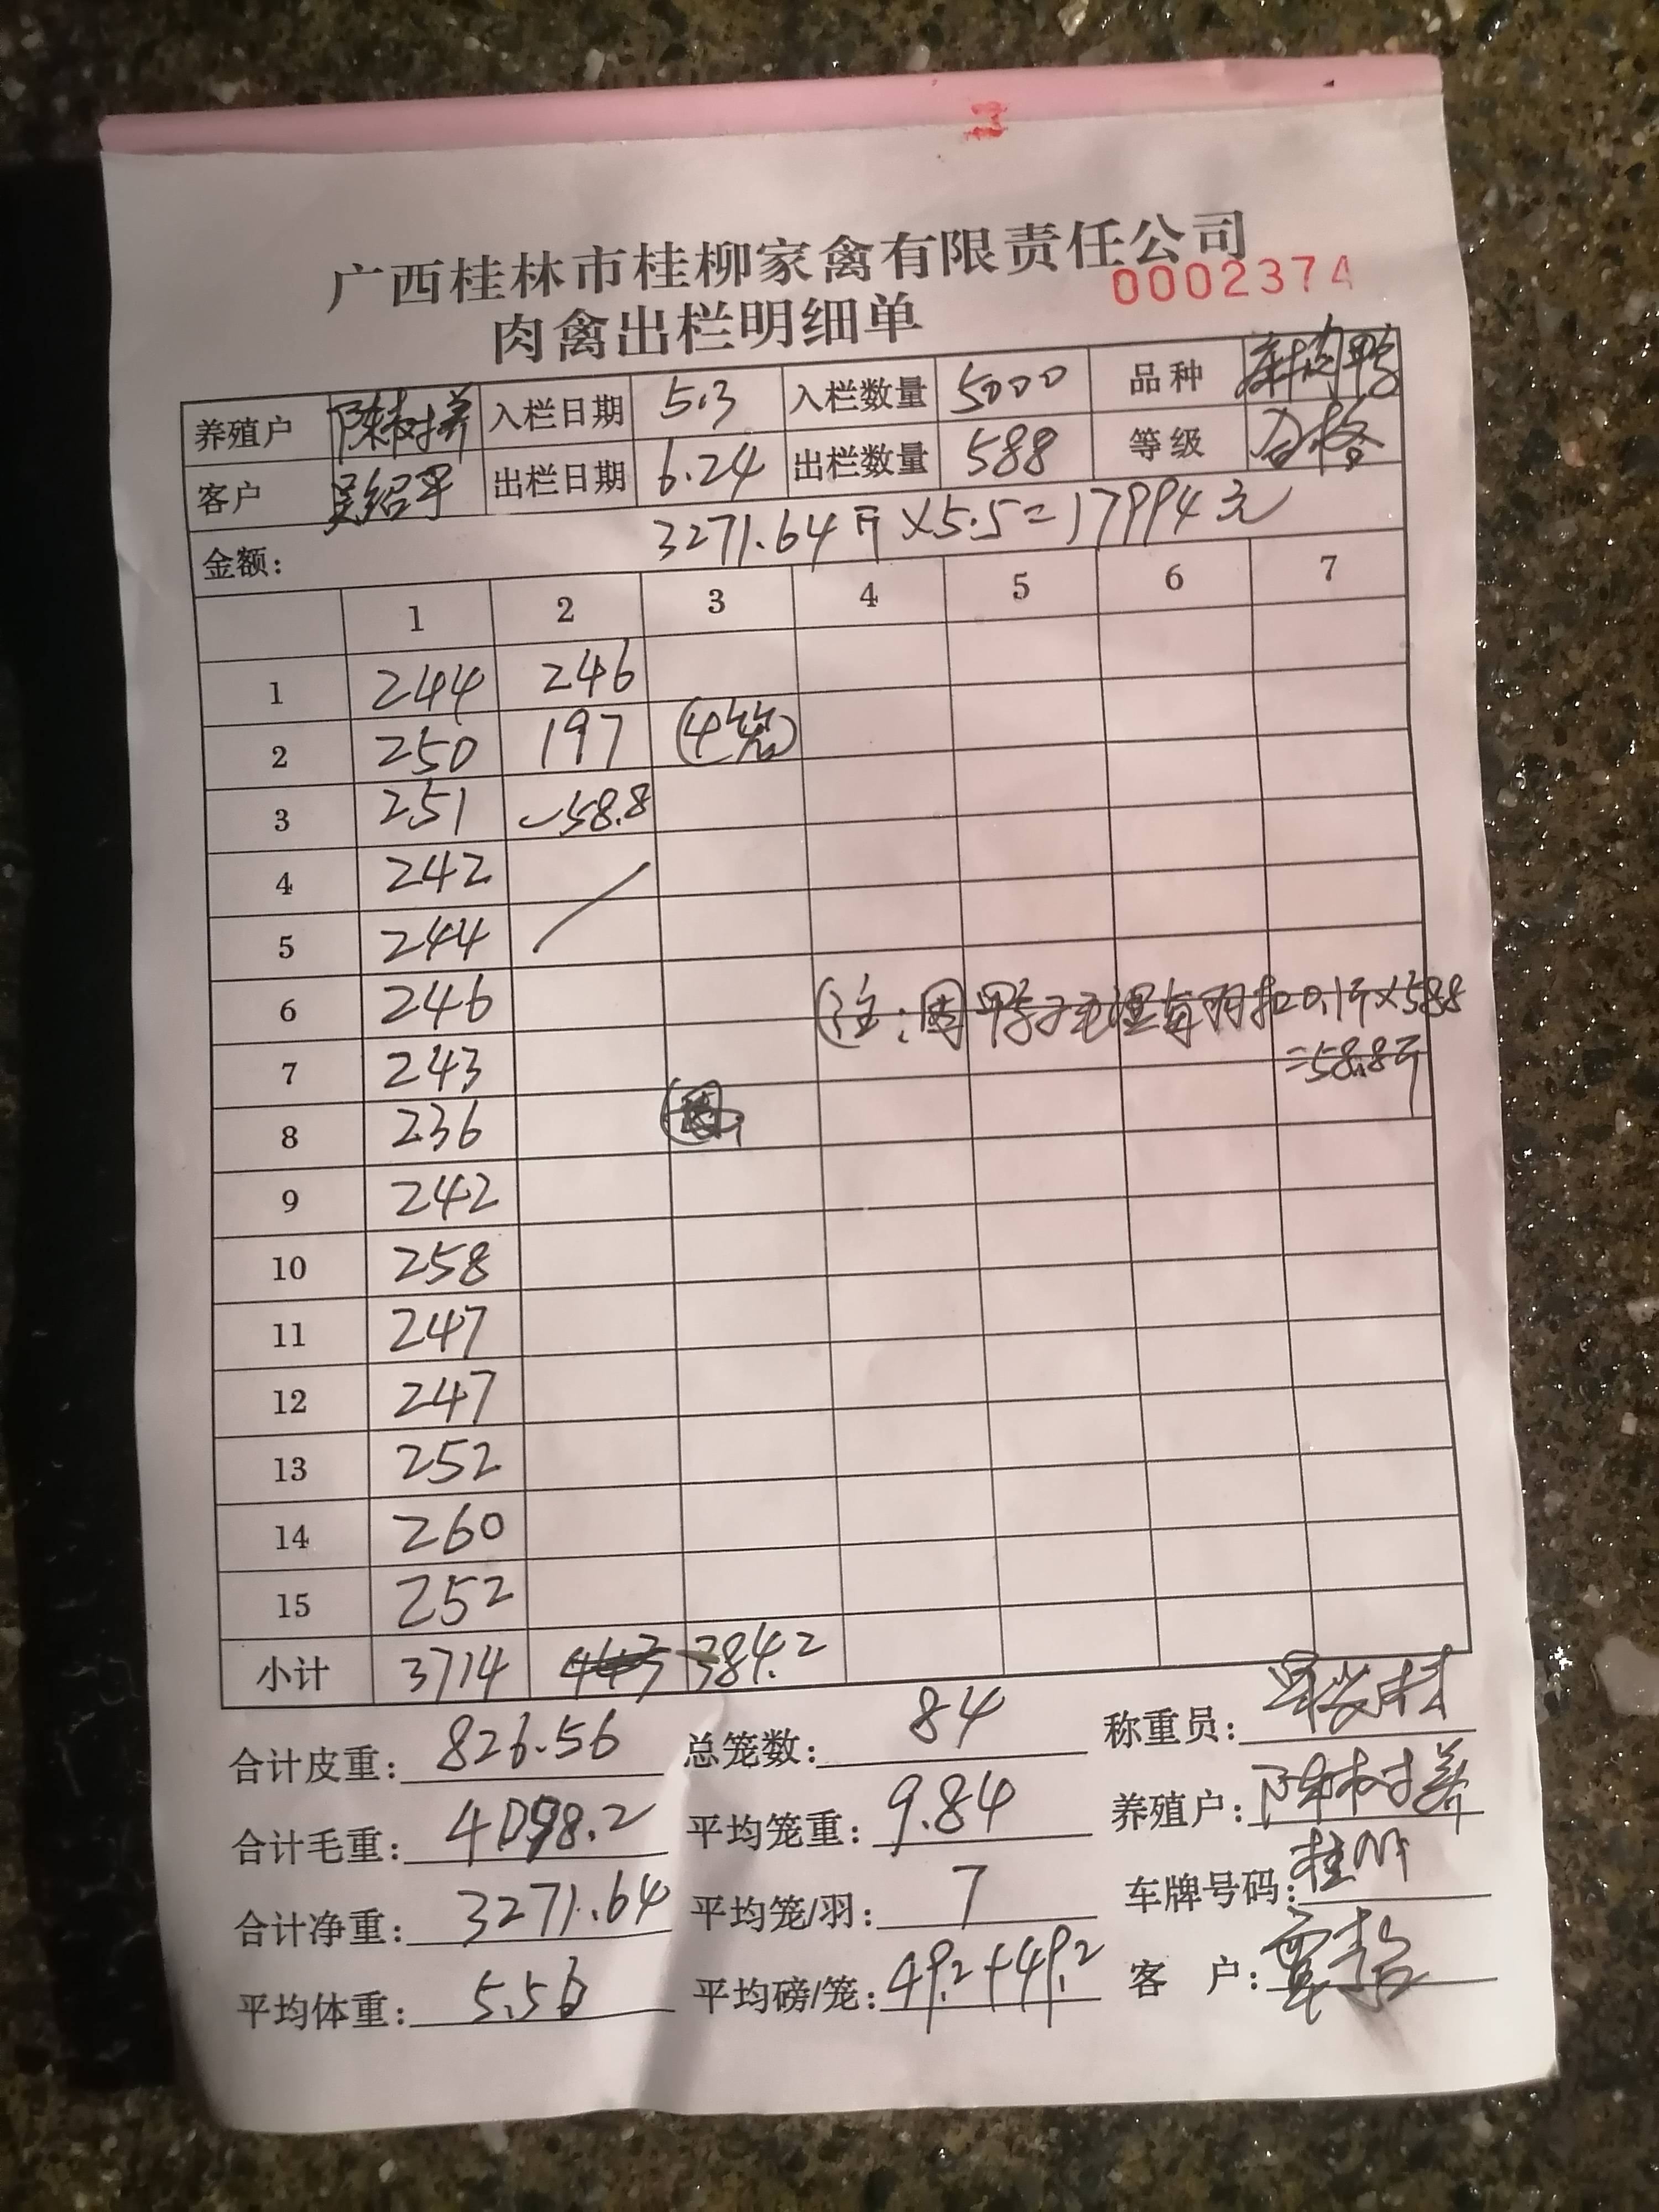 广西桂林市桂柳家禽有限责任公司
0002374
肉禽出栏明细单
养殖户 陈树养 入栏日期 5.3 入栏数量 5000 品种
客户 吴绍平 出栏日期 6.24 出栏数量 588 等级 合格
金额: 3271.64斤×5.5=17994元
1 2 3 4 5 6 7
1 244 246
2 250 197 (4笼)
3 251 -58.8
4 242
5 244
6 246 (注:因鸭子毛湿每羽扣0.1斤×588
7 243 =58.8斤
8 236
9 242
10 258
11 247
12 247
13 252
14 260
15 252
小计 3714 443 384.2
合计皮重: 826.56 总笼数: 84 称重员:
合计毛重: 4098.2 平均笼重: 9.84 养殖户: 陈树养
合计净重: 3271.64 平均笼/羽: 7 车牌号码: 桂
平均体重: 5.56 平均磅/笼: 49.2+49.2 客 户: